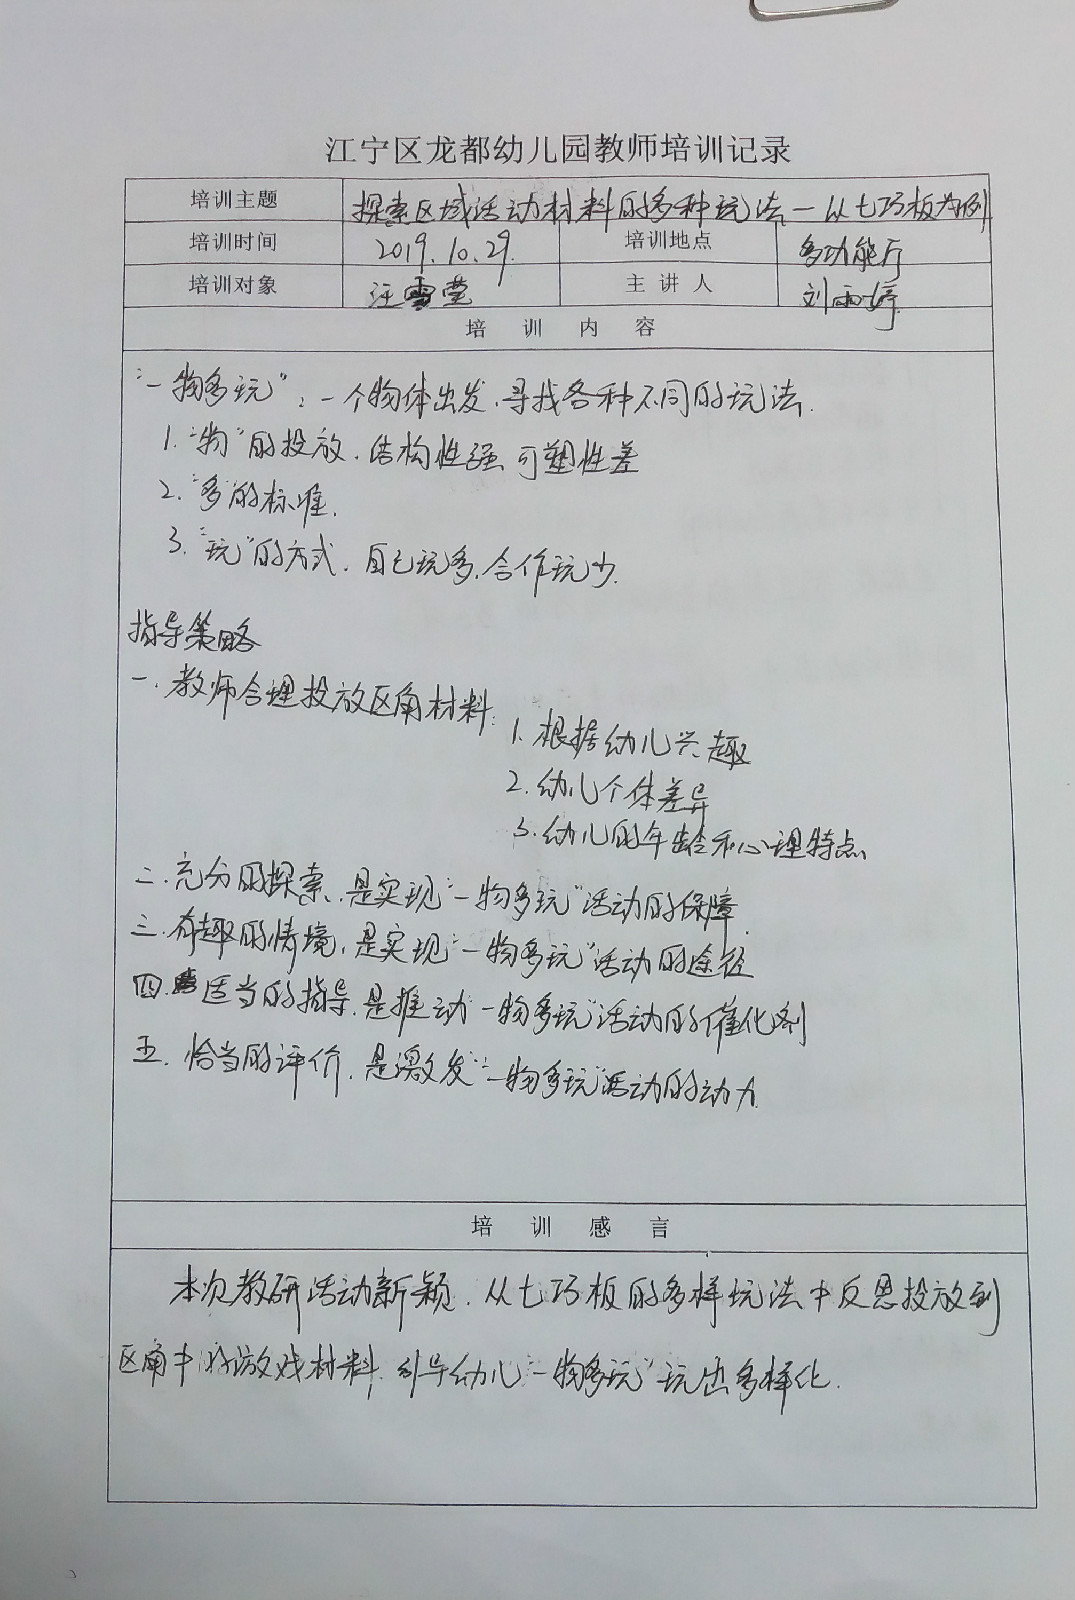 江宁区龙都幼儿园教师培训记录
培训主题 探索区域活动材料的多种玩法一从七巧板为例
培训时间 2019.10.29. 培训地点 多功能厅
培训对象 汪雪莹 主讲人 刘雨婷
培训内容
"一物多玩"：一个物体出发，寻找各种不同的玩法.
1."物"的投放，结构性强 可塑性差
2."多"的标准.
3."玩"的方式，自己玩多，合作玩少.
指导策略
一.教师合理投放区角材料:
1.根据幼儿兴趣
2.幼儿个体差异
3.幼儿的年龄和心理特点
二.充分的探索，是实现"一物多玩"活动的保障.
三.有趣的情境，是实现"一物多玩"活动的途径
四.适当的指导，是推动"一物多玩"活动的催化剂
五.恰当的评价，是激发"一物多玩"活动的动力.
培训感言
本次教研活动新颖，从七巧板的多样玩法中反思投放到
区角中的游戏材料，引导幼儿"一物多玩"玩出多样化.